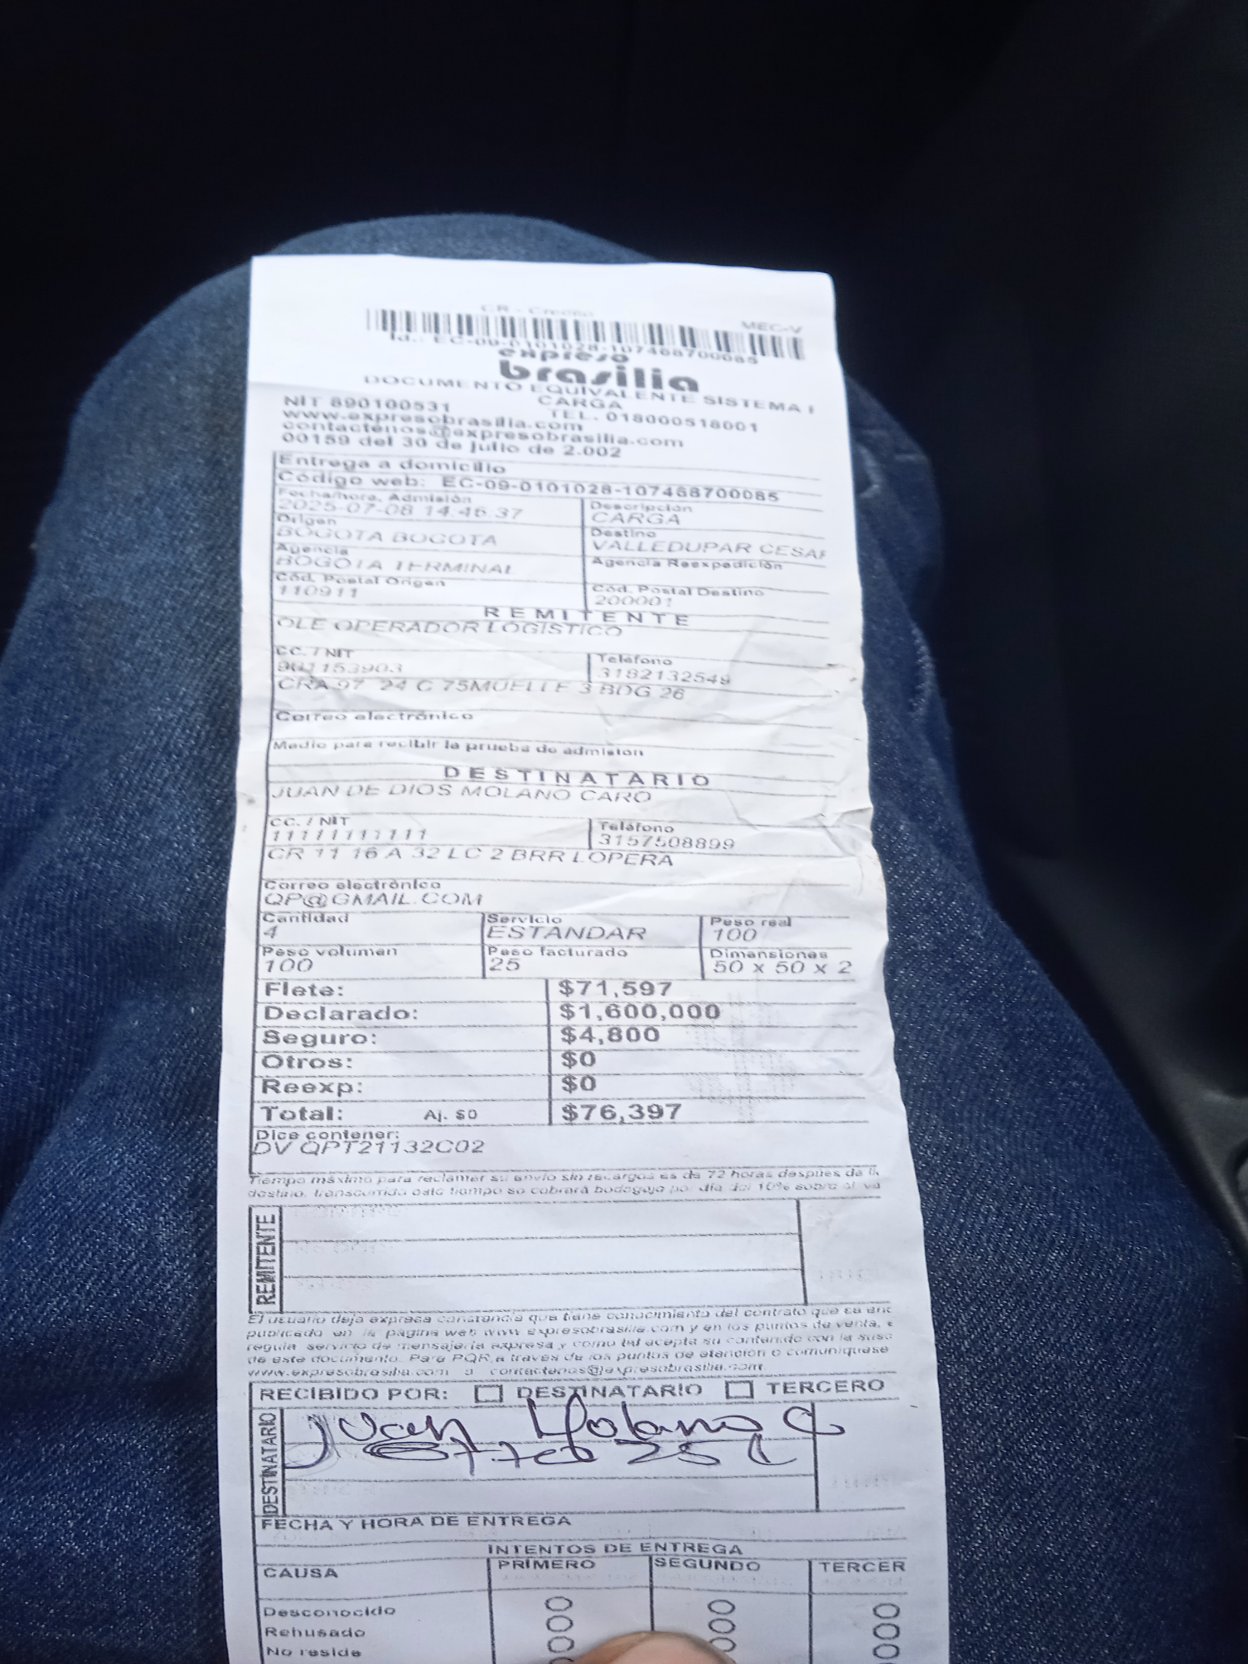 CR - Credito MEC-V
Id.: EC-09-0101028-107468700085
expreso
brasilia
DOCUMENTO EQUIVALENTE SISTEMA
CARGA
NIT 890100531 TEL. 018000518001
www.expresobrasilia.com
contactenos@expresobrasilia.com
00159 del 30 de julio de 2.002
Entrega a domicilio
Código web: EC-09-0101028-107468700085
Fecha/hora. Admisión Descripción
2025-07-08 14:46:37 CARGA
Origen Destino
BOGOTA BOGOTA VALLEDUPAR CESAR
Agencia Agencia Reexpedición
BOGOTA TERMINAL
Cód. Postal Origen Cód. Postal Destino
110911 200001
REMITENTE
OLE OPERADOR LOGISTICO
CC. / NIT Teléfono
901153903 3182132549
CRA 97 24 C 75MUELLE 3 BDG 26
Correo electrónico
Medio para recibir la prueba de admision
DESTINATARIO
JUAN DE DIOS MOLANO CARO
CC. / NIT Teléfono
11111111111 3157508899
CR 11 16 A 32 LC 2 BRR LOPERA
Correo electrónico
QP@GMAIL.COM
Cantidad Servicio Peso real
4 ESTANDAR 100
Peso volumen Peso facturado Dimensiones
100 25 50 x 50 x 2
Flete: $71,597
Declarado: $1,600,000
Seguro: $4,800
Otros: $0
Reexp: $0
Total: Aj. $0 $76,397
Dice contener:
DV QPT21132C02
Tiempo máximo para reclamar su envío sin recargos es de 72 horas despues de
destino, transcurrido este tiempo se cobrará bodegaje por dia del 10% sobre el va
REMITENTE
El usuario deja expresa constancia que tiene conocimiento del contrato que se enc
publicado en la pagina web www.expresobrasilia.com y en los puntos de venta,
regula servicio de mensajería expresa y como tal acepta su contenido con la susc
de este documento. Para PQR a través de los puntos de atención o comuníquese
www.expresobrasilia.com a contactenos@expresobrasilia.com.
RECIBIDO POR: DESTINATARIO TERCERO
DESTINATARIO
Juan Molano C
FECHA Y HORA DE ENTREGA
INTENTOS DE ENTREGA
CAUSA PRIMERO SEGUNDO TERCER
Desconocido
Rehusado
No reside